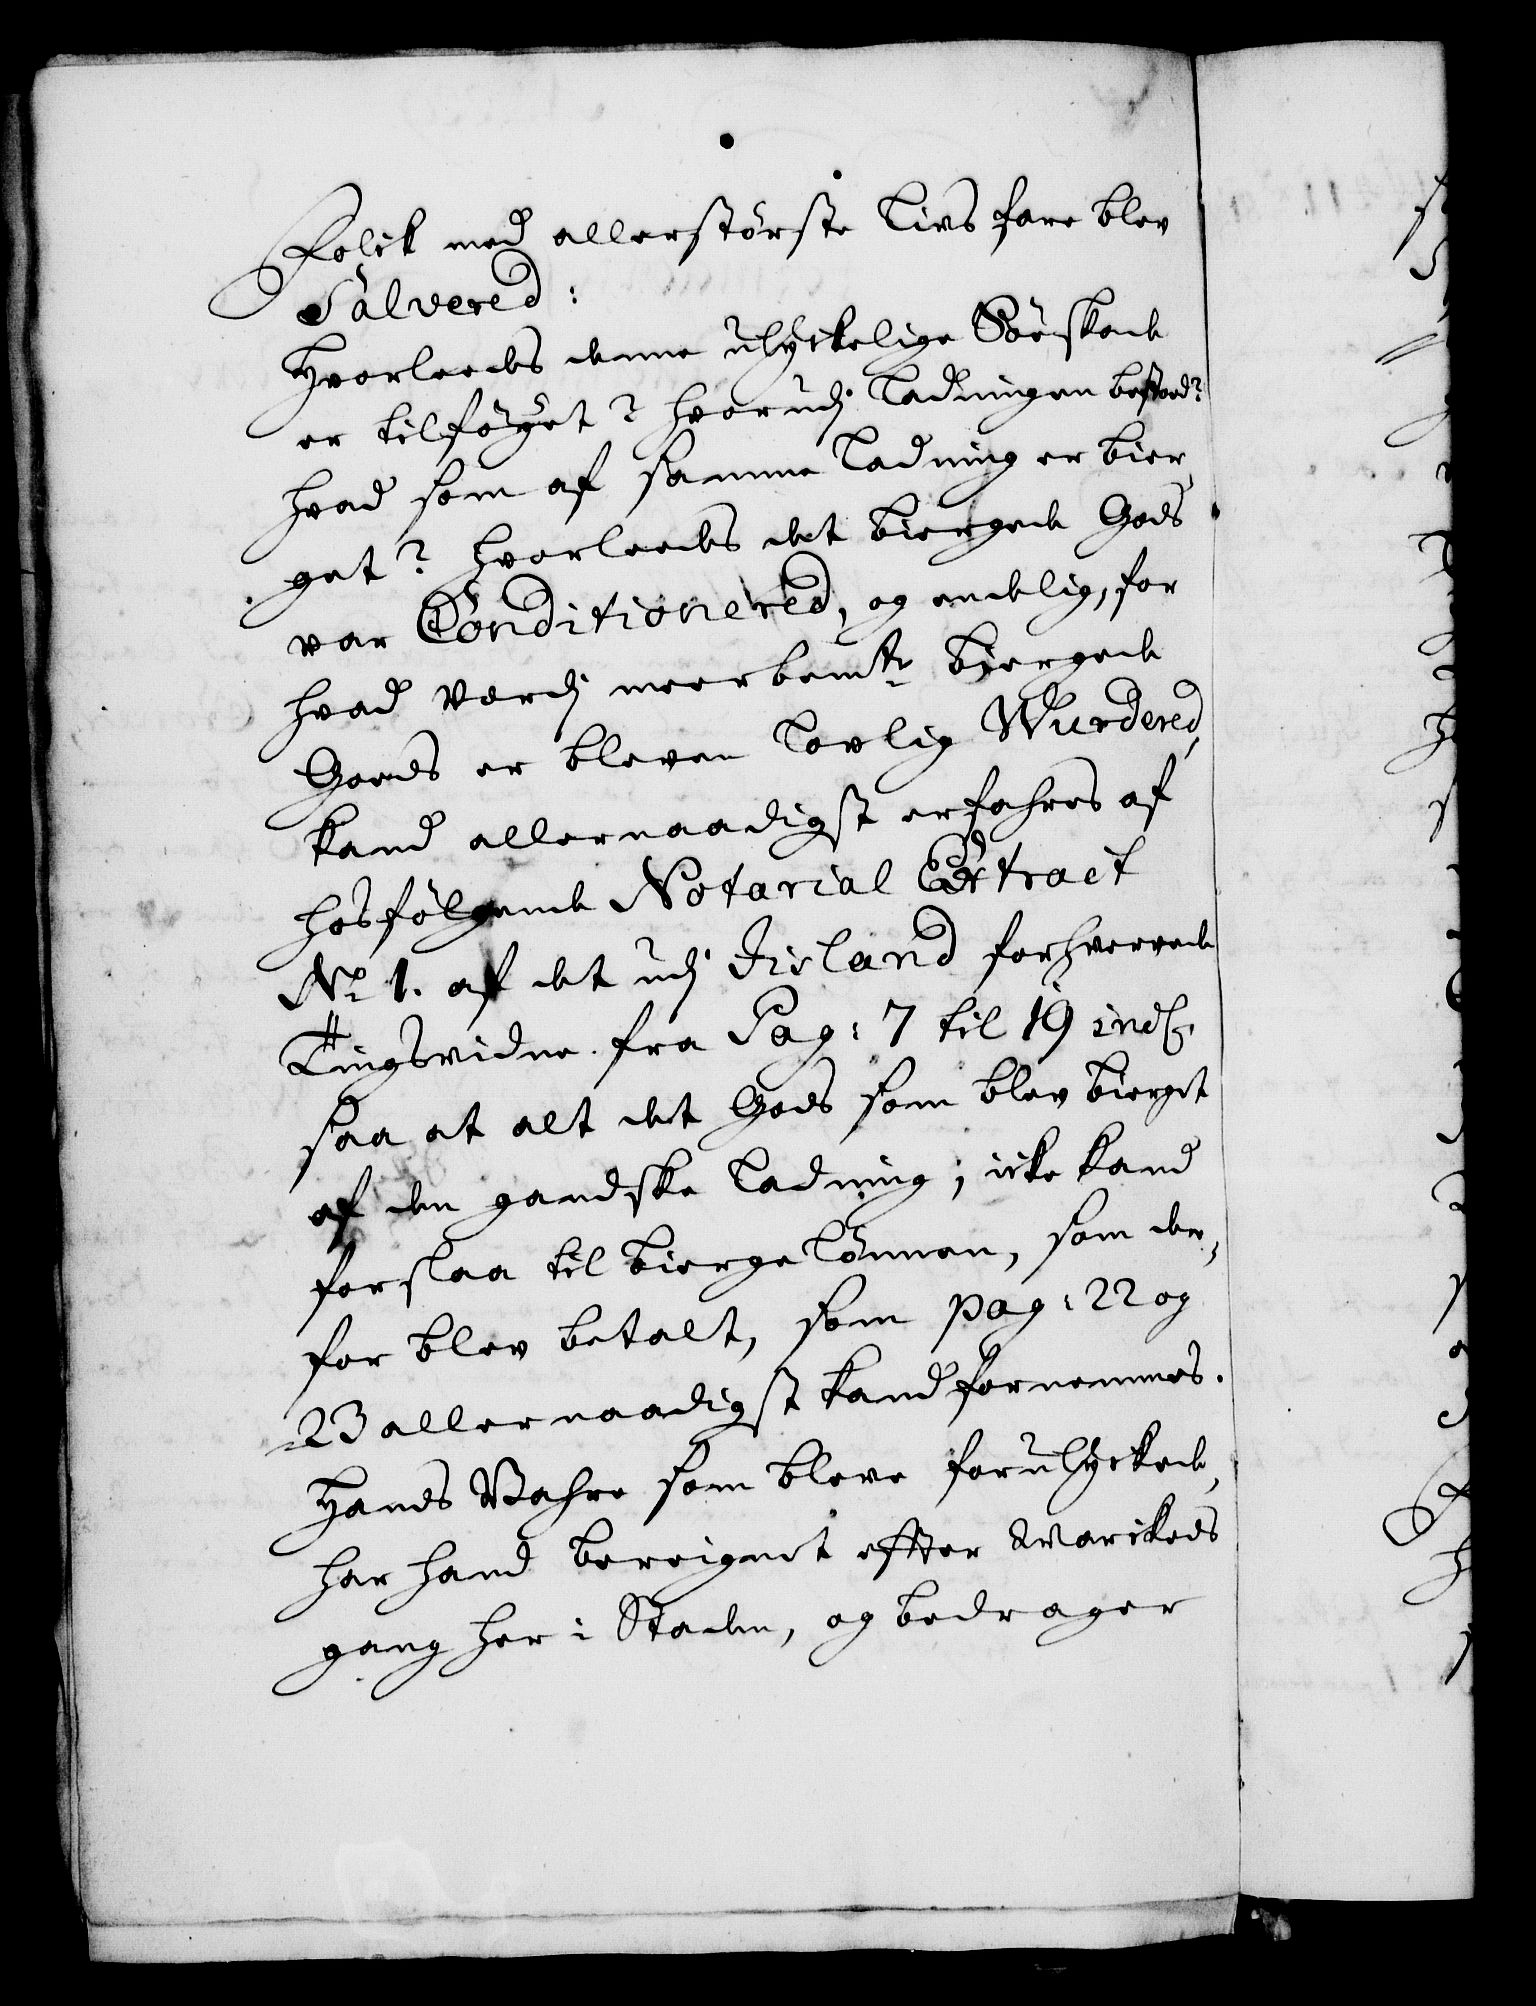 Folck med allerstörste Livs fare blev
Salvered:
Hvorleedes denne ulyckelige Söeskade
er tilföyet? hvorudj Ladningen bestoed?
hvad som af samme Ladning er bier,
get? hvorleedes det biergede Gods
var Conditionered, og endelig, for
hvad Værdj meerbemte biergede
Goeds er bleven Lovlig Wurdered,
kand allernaadigst erfahres af
hosfölgende Notarial Extract
No 1. af det udj Irland forhvervede
Tingsvidne fra Pag: 7 til 19 incl.
saa at alt det Gods som blev bierget
af den gandske Ladning; icke kand
forslaa til bierge Lönnen, som der,
for blev betalt, som pag: 22 og
23 allernaadigst kand fornemmes.
Hands Vahre som bleve forulyckede,
har hand bereignet efter Marckeds
gang her i Staden, og bedrager